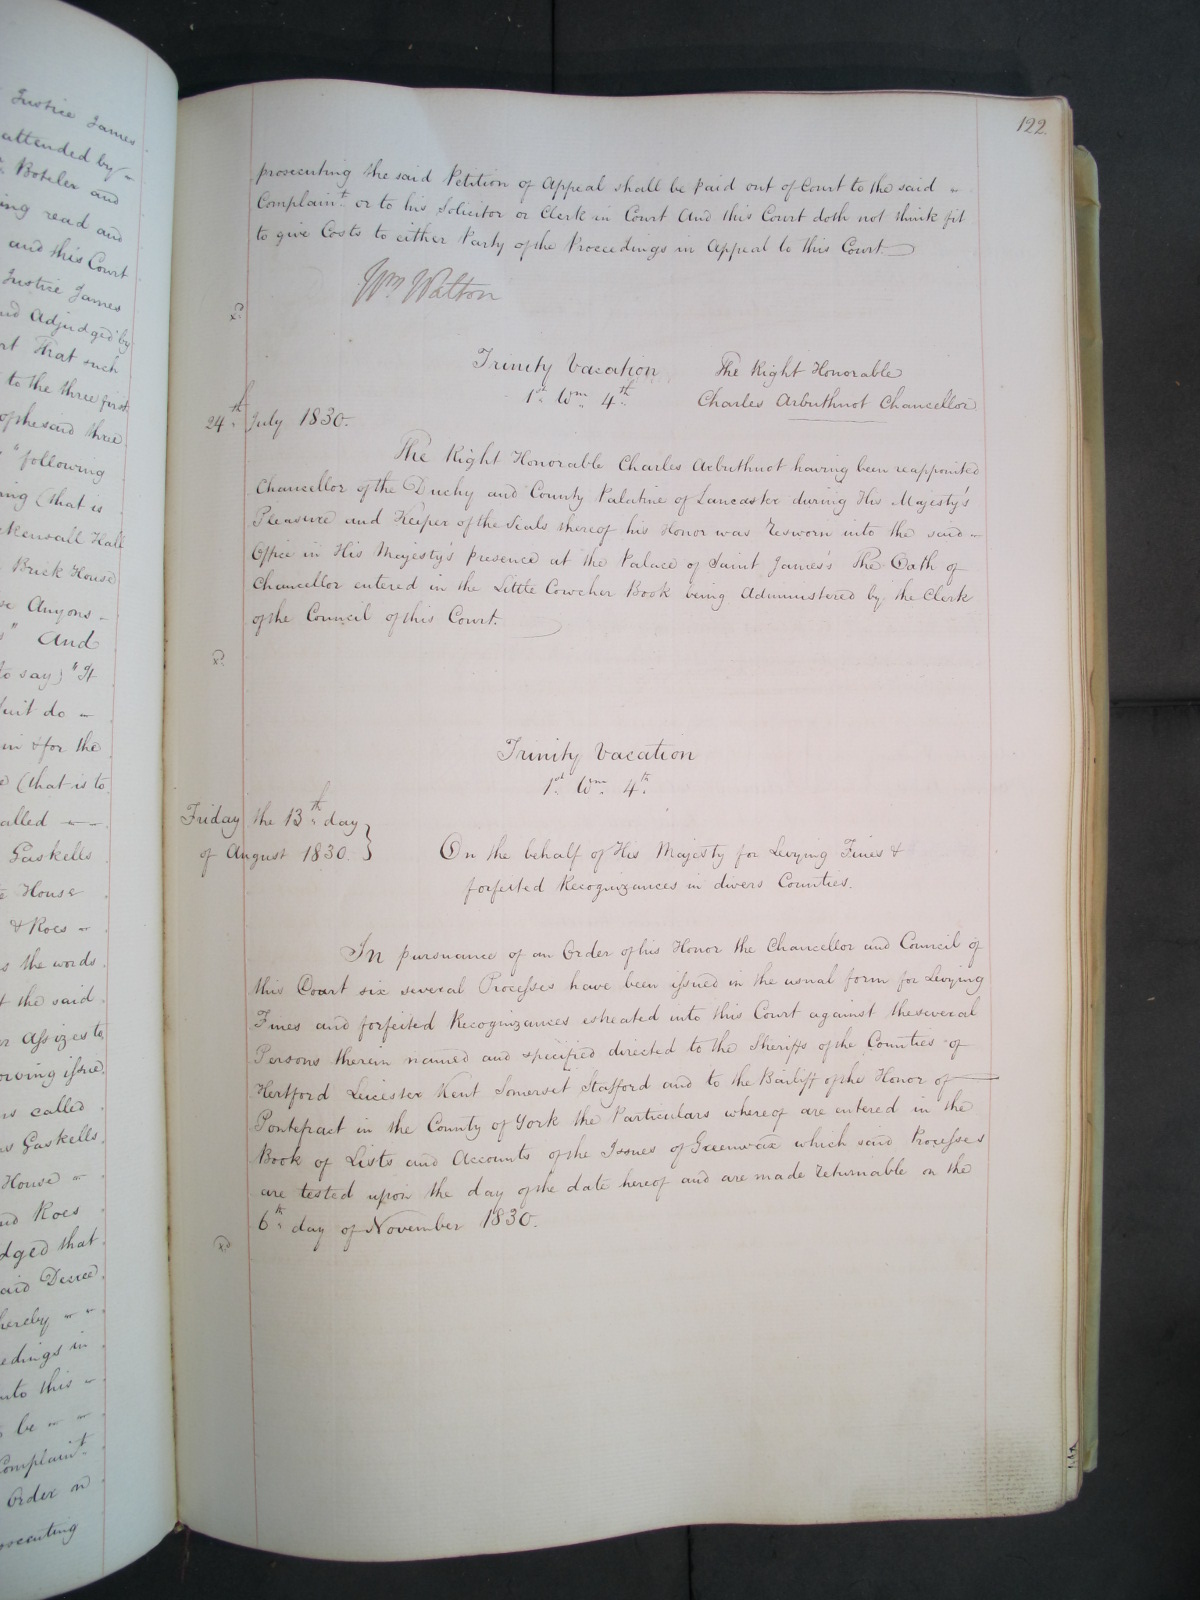 Justice James
attended by
Boteler and
ing read and
and this Court
Justice James
Adjudged by
That such
to the three first
of the said three
"following
ing (that is
Mensall Hall
Brick House
Anyons
" And
to say) "It
suit do
in & for the
(that is to
called
Gaskells
House
& Roes
the words
the said
Assizes to
owing issue
called
Gaskells
House
and Roes
dged that
said Decree
hereby
edings in
unto this
be
Complain.t
Order on
osecuting
122
prosecuting the said Petition of Appeal shall be Paid out of Court to the said
Complain.t or to his Solicitor or Clerk in Court And this Court doth not think fit
to give Costs to either Party of the Proceedings in Appeal to this Court.
Wm Walton
xd
Trinity Vacation The Right Honorable
1st Wm 4th Charles Arbuthnot Chancellor
24th July 1830.
The Right Honorable Charles Arbuthnot having been reappointed
Chancellor of the Duchy and County Palatine of Lancaster during His Majesty's
Pleasure and Keeper of the Seals thereof his Honor was resworn into the said
Office in His Majesty's presence at the Palace of Saint James's The Oath of
Chancellor entered in the Little Cowcher Book being Administered by the Clerk
of the Council of this Court.
xd
Trinity Vacation
1st Wm 4th
Friday the 13th day
of August 1830. }
On the behalf of His Majesty for Levying Fines &
forfeited Recognizances in divers Counties.
In pursuance of an Order of his Honor the Chancellor and Council of
this Court six several Processes have been issued in the usual form for Levying
Fines and forfeited Recognizances estreated into this Court against the several
Persons therein named and specified directed to the Sheriffs of the Counties of
Hertford Leicester Kent Somerset Stafford and to the Bailiff of the Honor of
Pontefract in the County of York the Particulars whereof are entered in the
Book of Lists and Accounts of the Issues of Greenwax which said Processes
are tested upon the day of the date hereof and are made returnable on the
6th day of November 1830.
xd